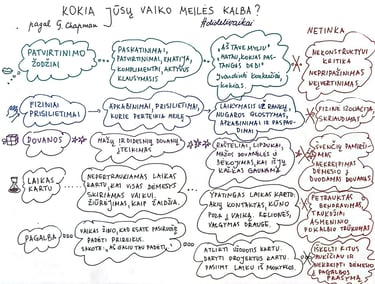 KOKIA JŪSŲ VAIKO MEILĖS KALBA?
pagal G. Chapman
#didelivaikai
NETINKA
PATVIRTINIMO
ŽODŽIAI
PASKATINIMAI,
PATVIRTINIMAI, EMPATIJA,
KOMPLIMENTAI, AKTYVUS
KLAUSYMASIS
„AŠ TAVE MYLIU“
MATAU, KOKIAS
PASTANGAS DEDI
Įvardinti konkrečiai,
kokias.
NEKONSTRUKTYVI
KRITIKA
NEPRIPAŽINIMAS
NEĮVERTINIMAS
FIZINIAI
PRISILIETIMAI
APKABINIMAI, PRISILIETIMAI,
KURIE PERTEIKIA MEILĘ
LAIKYMASIS UŽ RANKŲ,
NUGAROS GLOSTYMAS,
APKABINIMAI IR PASPAU-
DIMAI
FIZINĖ IZOLIACIJA,
SKRIAUDIMAS
DOVANOS
MAŽŲ IR DIDESNIŲ DOVANŲ
ĮTEIKIMAS
RAŠTELIAI, LIPDUKAI,
MAŽOS DOVANĖLĖS
DĖKOJIMAS, KAI IŠ JŲ
KAŽKĄ GAUNAME
ŠVENČIŲ PAMIRŠI-
MAS
NEKREIPIMAS
DĖMESIO Į
DUODAMAS DOVANAS
LAIKAS
KARTU
NEPERTRAUKIAMAS LAIKAS
KARTU, KAI VISAS DĖMESYS
SKIRIAMAS VAIKUI.
ŽIŪRĖJIMAS, KAIP ŽAIDŽIA.
YPATINGAS LAIKAS KARTU.
AKIŲ KONTAKTAS, KŪNO
POZA Į VAIKĄ. KELIONĖS,
VALGYMAS DRAUGE.
PETRAUKTAS
BENDRAVIMAS,
TRUKDŽIAI
ASMENINIO
POKALBIO TRŪKUMAS
PAGALBA
VAIKAS ŽINO, KAD ESATE PASIRUOŠĘ
PADĖTI PRIREIKUS.
SAKOTE: „AŠ GALIU TAU PADĖTI.“
ATLIKTI UŽDUOTIS KARTU.
DARYTI PROJEKTUS KARTU.
PASIIMTI LAIKU IŠ MOKYKLOS.
IŠKELTI KITUS
AUKŠČIAU IR
NEKREIPTI DĖMESIO
Į PAGALBOS
PRAŠYMĄ